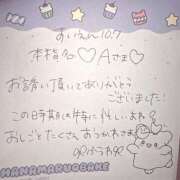 すいえん10.7
本指名♡Aさま♡
お誘い頂いてありがとう
ございました!
この時期は特に忙しいよね?
おしごとたくさんおつかれさま
HANAMARUOBAKE